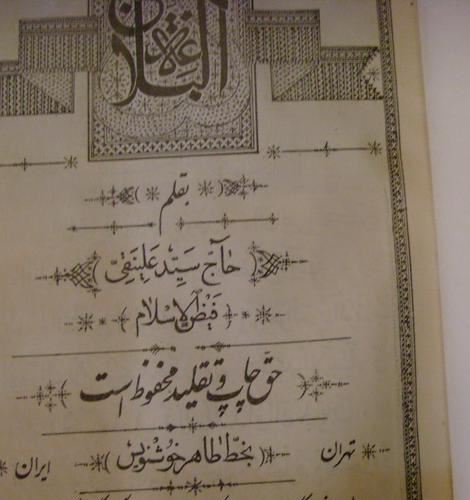 البلاغة
بقلم
حاج سید علینقی
فیض الاسلام
حق چاپ و تقلید محفوظ است
تهران بخط طاهر خوشنویس ایران